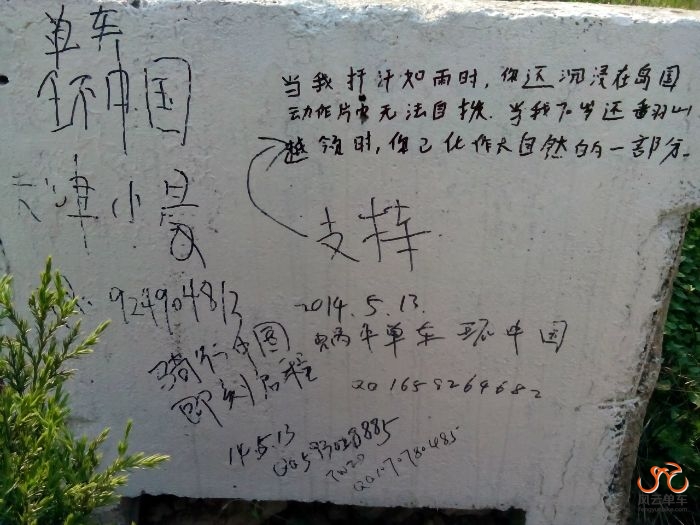 单车
环中国
天津小晨
924904813
当我挥汗如雨时,你还沉浸在岛国
动作片中无法自拔.当我下岁还番羽山
越领时,你已化作大自然的一部分.
支持
2014.5.13.
蜗牛单车环中国
QQ1659264682
骑行中国
即刻启程
14.5.13
风云单车